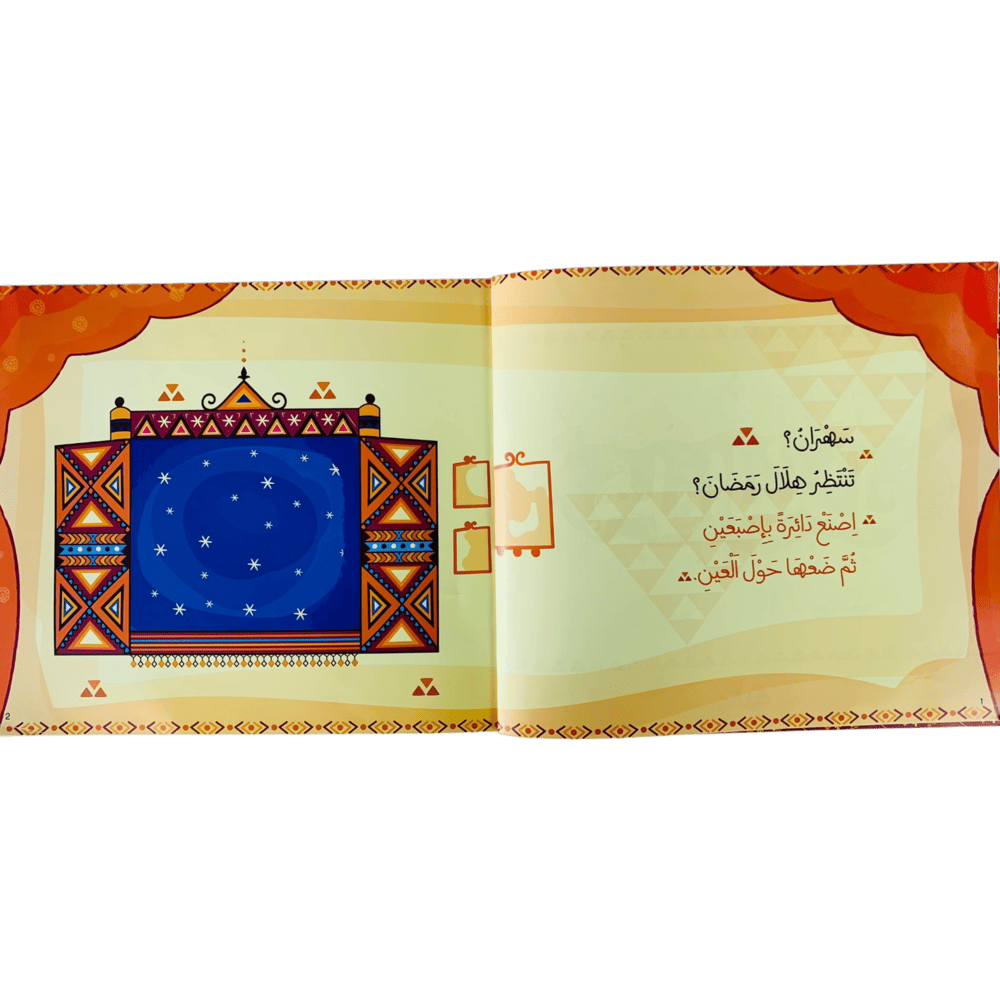 سَهْرَانُ؟
تَنْتَظِرُ هِلَالَ رَمَضَانَ؟
اِصْنَعْ دَائِرَةً بِإِصْبَعَيْنِ
ثُمَّ ضَعْهَا حَوْلَ الْعَيْنِ.
1
2